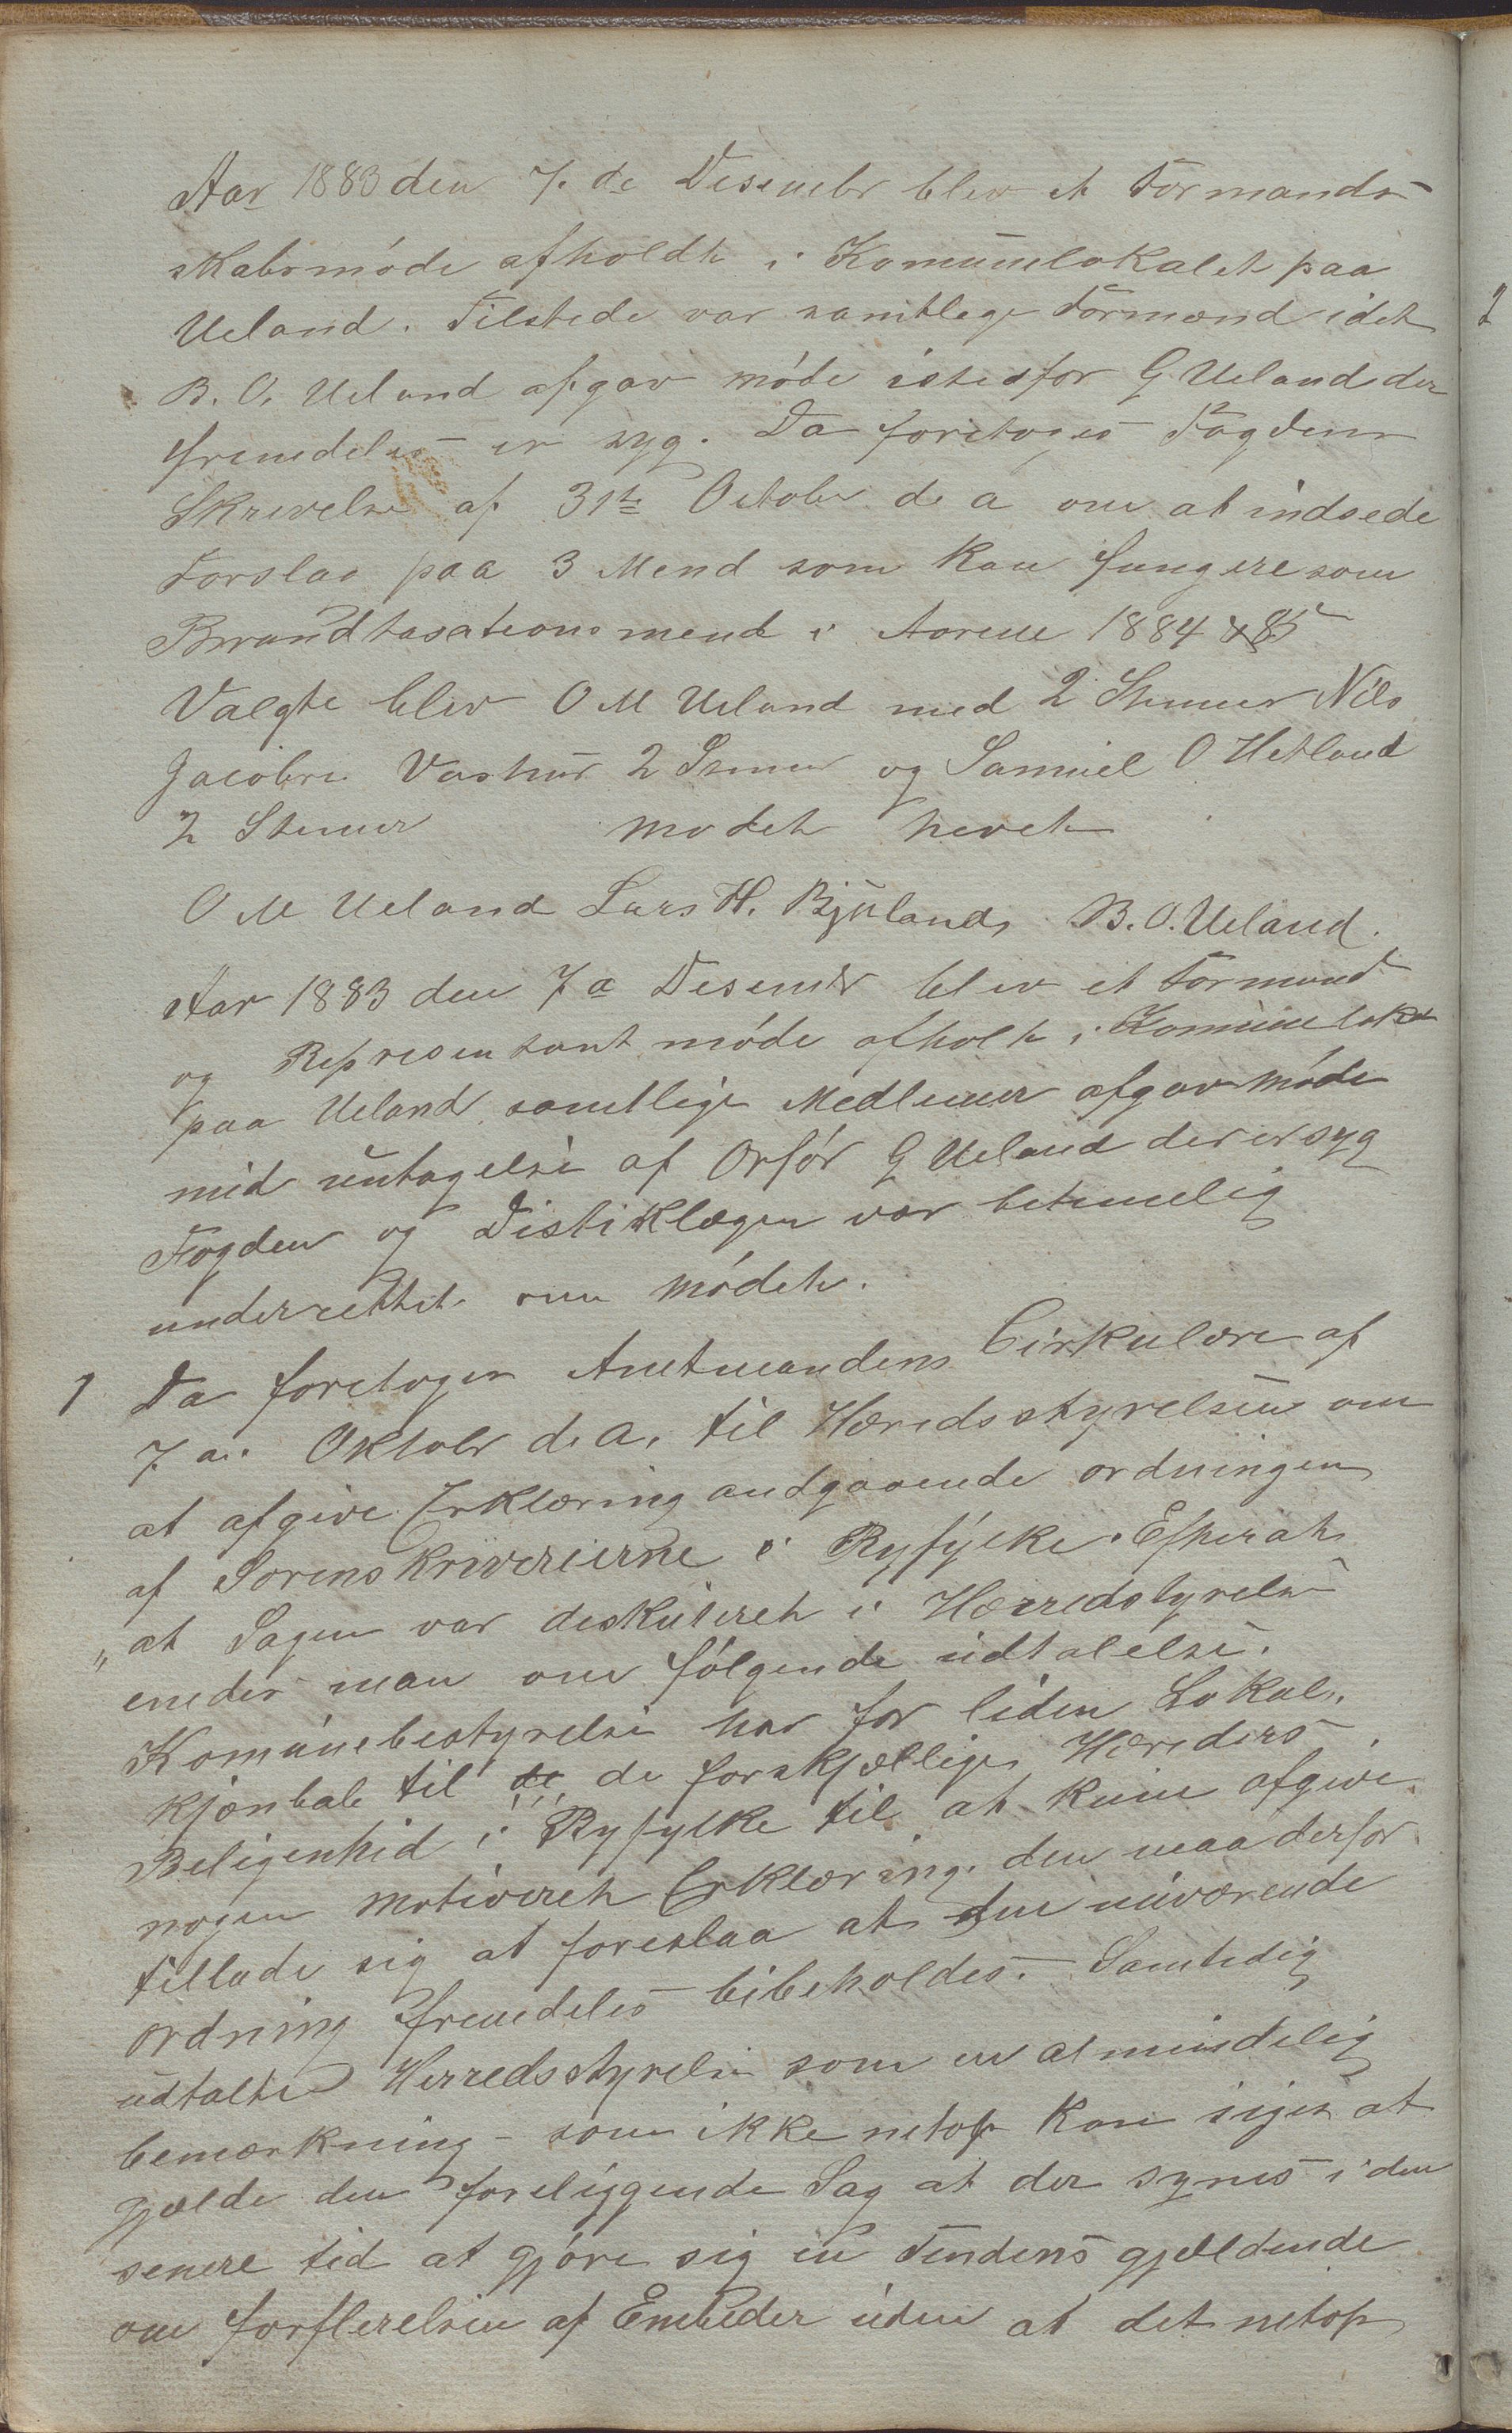 Aar 1883 den 7. de Desember blev et Formands-
skabsmöde afholdt i Komunelokalet paa
Ueland. Tilstede var samtlege Formænd idet
B. O. Ueland afgav möde istedfor G Ueland der
fremdeles er syg. Da foretoges Fogdens
Skrivelse af 31te October d. a om at indsede
Forslag paa 3 Mend som kan fungere som
Brandtasationsmend i Aarene 1884 & 85
Valgte blev O M Ueland med 2 Stemer Nils
Jacobsen Vashus 2 Stemer og Samuel O Hetland
2 Stemer Modet hevet
O M Ueland Lars H. Bjuland, B. O. Ueland.
Aar 1883 den 7 a Desember blev et Formand
og Represen tant möde afholt i Komunelok
paa Ueland samtlige Medlemer afgav Möde
med untagelse af Orför G Ueland der er syg
Fogden og Distiklægen var betimelig
underrettet om Mödet.
1 Da foretoges Amtmandens Cirkulære af
7 a. Oktober d. A. til Heredsstyrelsen om
at afgive Erklæring andgaaende ordningen
af Sorenskriverierne i Ryfylke. Efterat
" at Sagen var deskuteret i Herredstyrelse
enedes man om fölgende udtalelse.
Komunebestyrelse har for liden Lokal,
kjønbab til de de forskjællige Hereders
Beligenhed i Ryfylke til at kune afgive
nogen Motiveret Erklæring. den maa derfor
tillade sig at foreslaa at den nuværende
ordning fremdeles bibeholdes. Samtedig
udtalte Herredsstyrelse som en almindelig
bemærkning - som ikke netop kan siges at
gjælde den foreliggende Sag at der synes i den
senere tid at gjöre sig en Tendens gjældende
om forflerelsen af Embeder uden at det netop